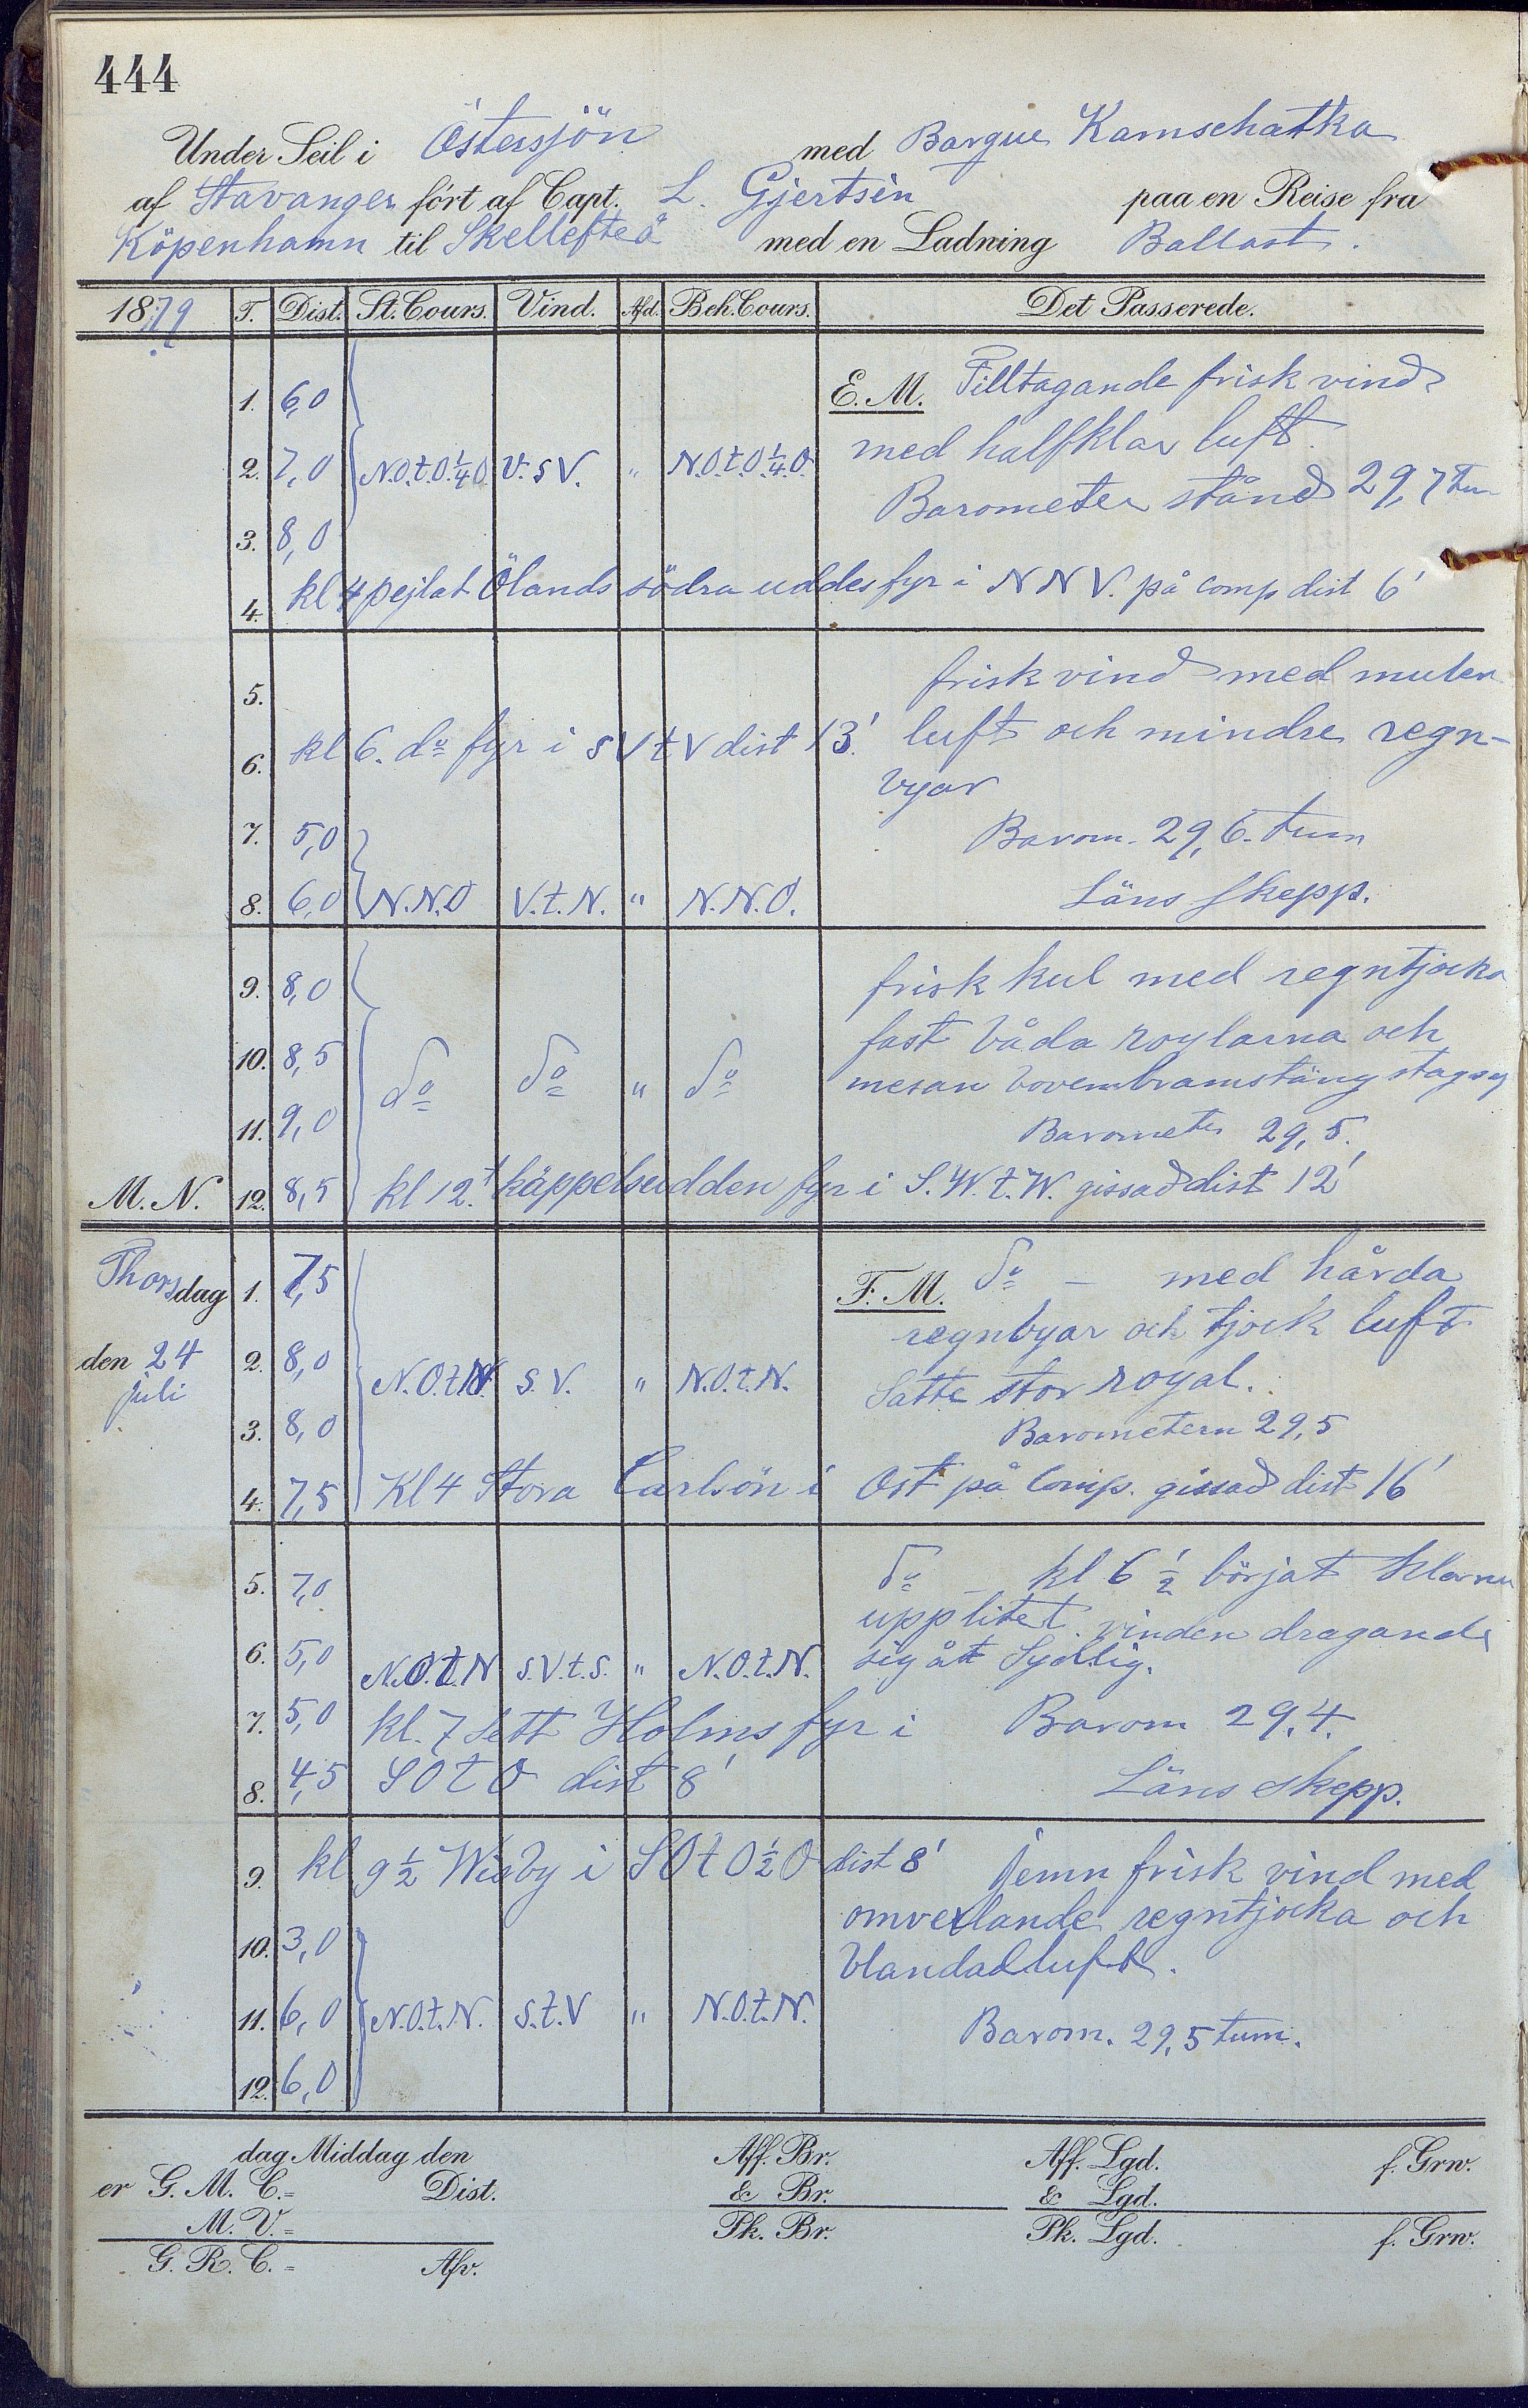 444
Under Seil i Östersjön med Barque Kamschatka
af Stavanger fört af Capt. L. Gjertsen paa en Reise fra
Köpenhamn til Skellefteå med en Ladning Ballast.
1879 T. Dist. St. Cours. Vind. Afd. Beh. Cours. Det Passerede.
1. 6,0 E. M. Tilltagande frisk vind
med halfklar luft.
2. 7,0 N.O.t.O.¼O V.SV. " N.O.t.O.¼.O.
Barometer stånd 29,7 tum
3. 8,0
4. kl 4 pejlat Ölands södra uddes fyr i NNV. på comp dist 6'
5. frisk vind med mulen
6. kl 6. do fyr i SVtV dist 13'. luft och mindre regn-
byar
7. 5,0 Barom. 29,6. tum
8. 6,0 N.N.O V.t.N. " N.N.O. Läns skepp.
9. 8,0 frisk kul med regntjocka
fast båda roylarna och
10. 8,5 do do " do mesan bovenbramstäng stagseg
11. 9,0 Barometer 29,5.
M. N. 12. 8,5 kl 12. käppelsudden fyr i S.W.t.W. gissad dist 12'
Thorsdag 1. 7,5 F. M. do - med hårda
regnbyar och tjock luft
den 24 2. 8,0 N.O.t.N. S.V. " N.O.t.N. Satte stor royal.
juli
3. 8,0 Barometern 29,5
4. 7,5 Kl 4 Stora Carlsön i Ost på Comp. gissad dist 16'
5. 7,0 do - kl 6 ½ börjat klarna
upp litet. vinden dragande
6. 5,0 N.O.t.N S.V.t.S. " N.O.t.N. sig åt Sydlig.
7. 5,0 kl. 7 sett Holms fyr i Barom 29,4.
8. 4,5 SOtO dist 8' Läns skepp.
9. kl 9½ Wisby i SOtO½O dist 8' Jemn frisk vind med
omvexlande regntjocka och
10. 3,0 blandad luft.
11. 6,0 N.O.t.N. S.t.V " N.O.t.N.
Barom. 29,5 tum.
12. 6,0
dag Middag den Aff. Br. Aff. Lgd. f. Grw.
er G. M. C.= Dist. & Br. & Lgd.
M. V.= Pk. Br. Pk. Lgd. f. Grw.
G. R. C.= Afv.